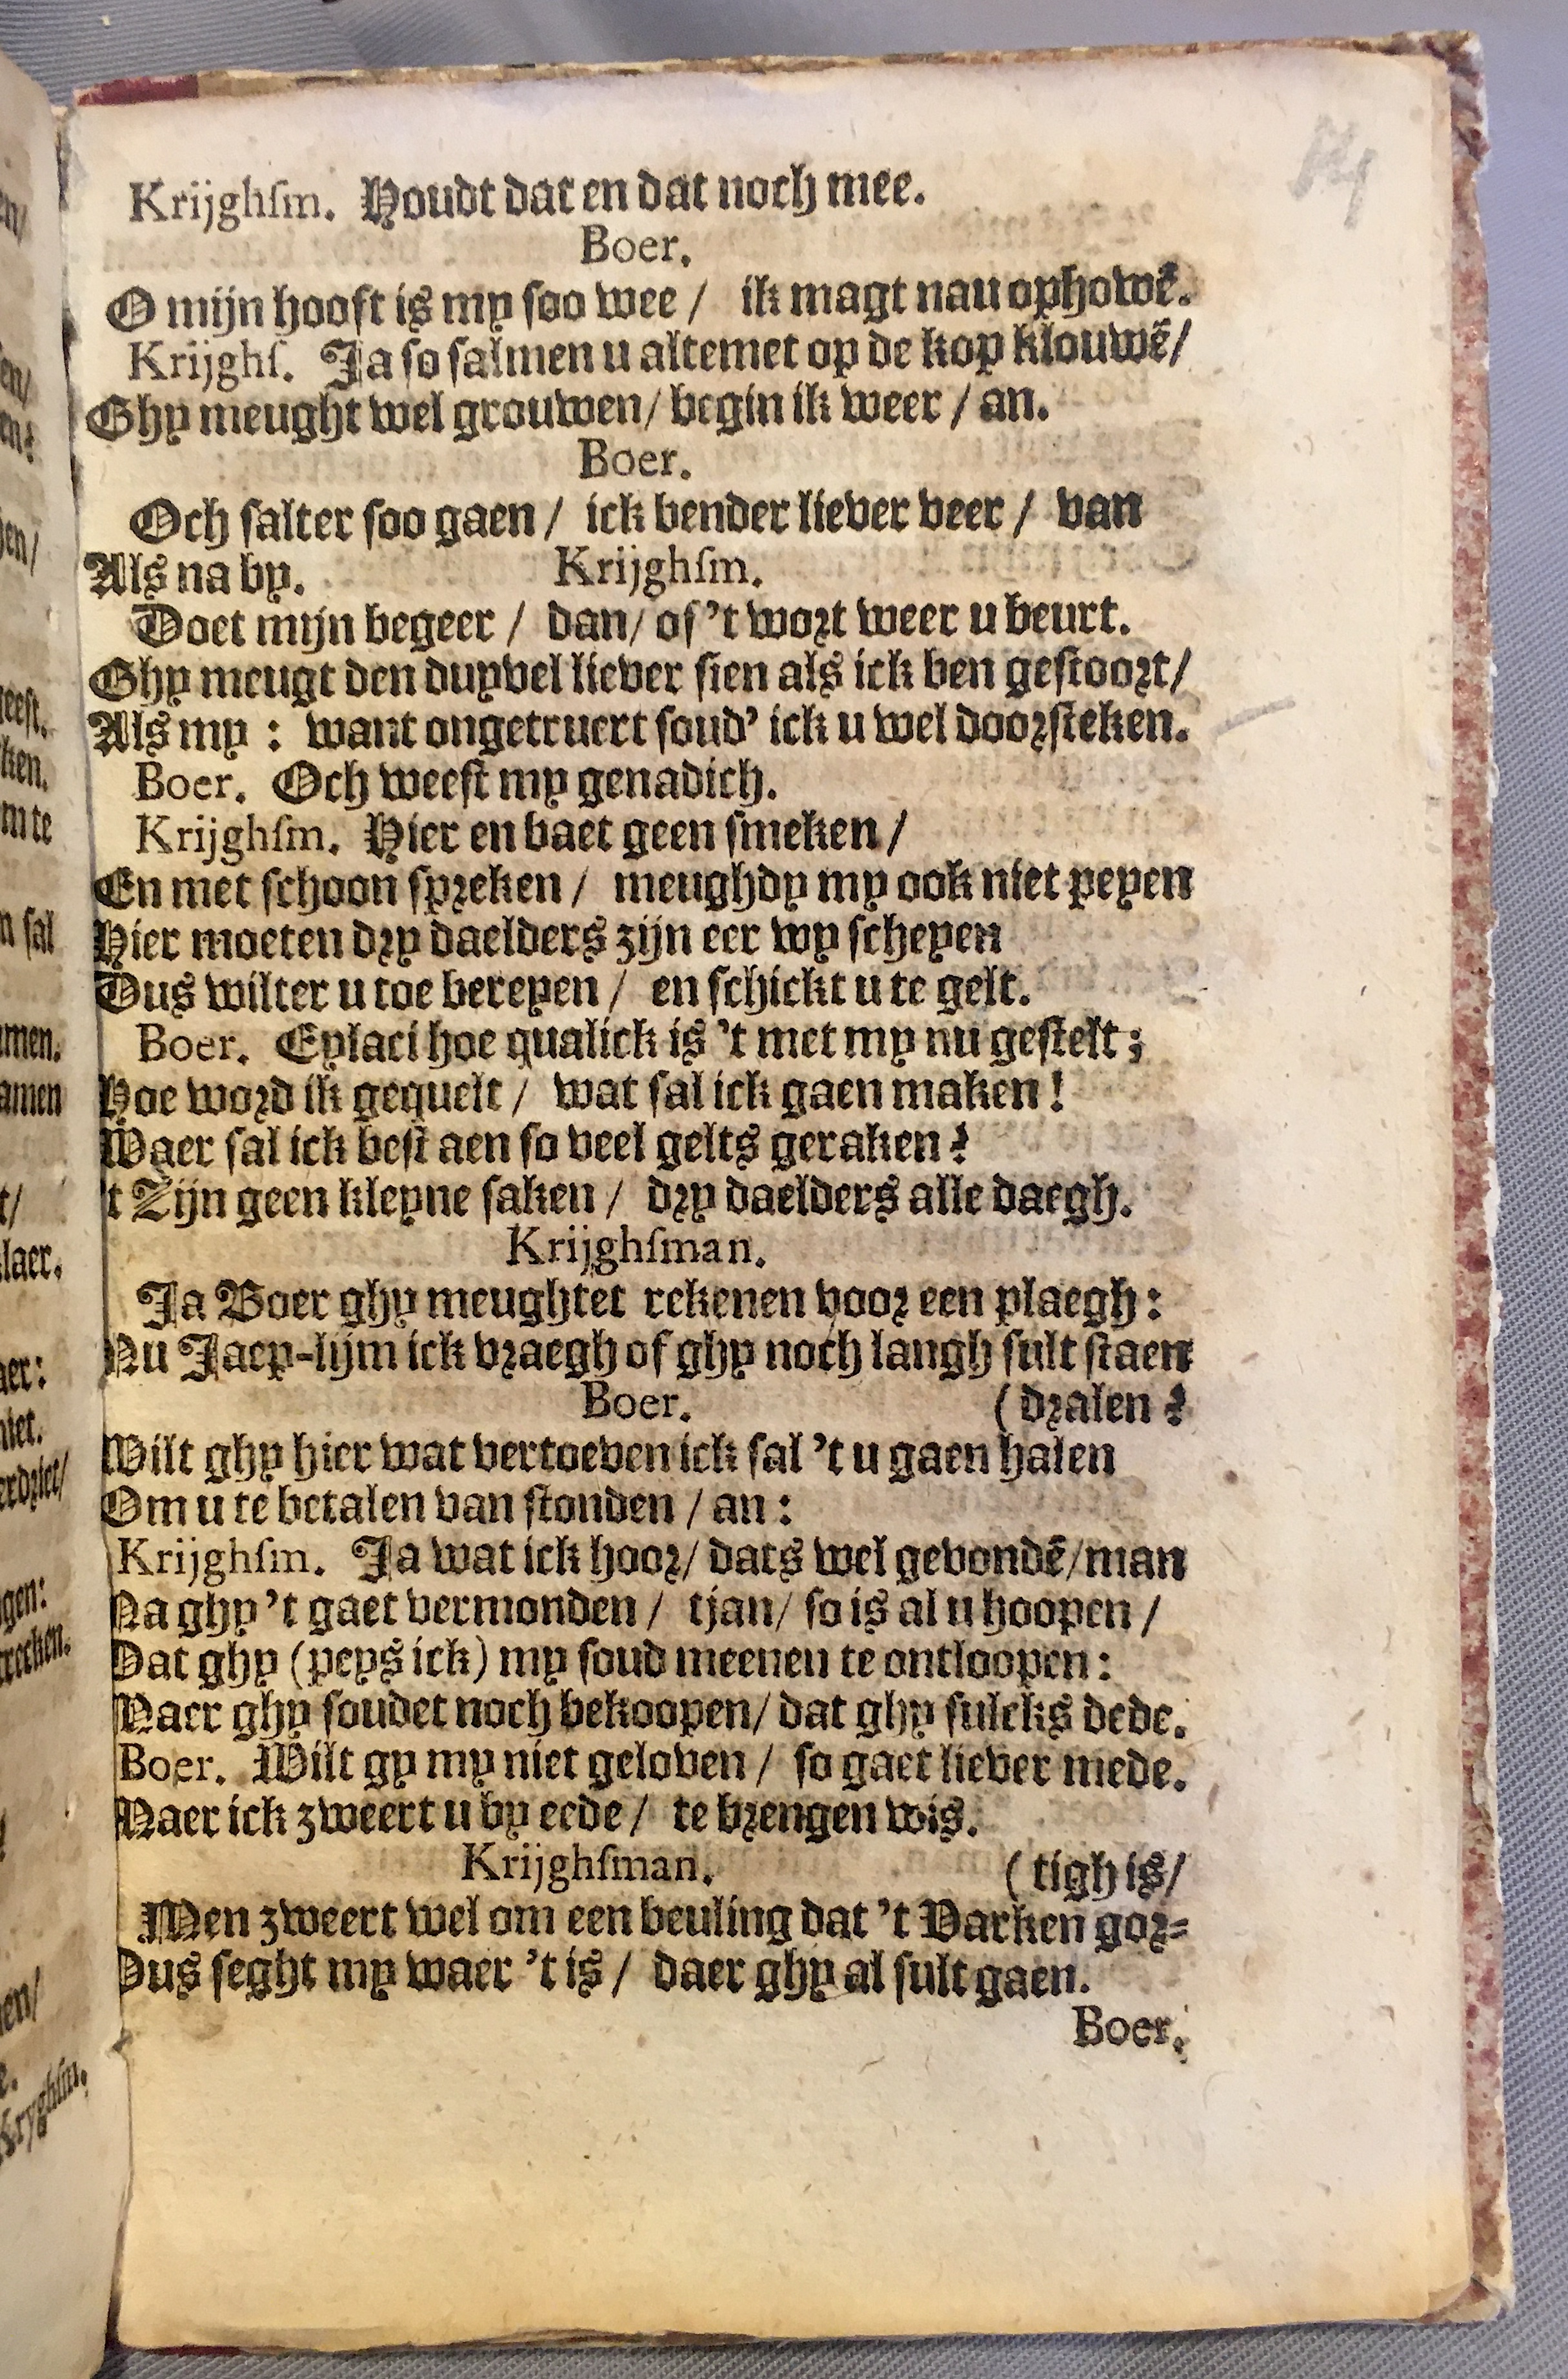 Krijghſm. Houdt dat en dat noch mee.
Boer.
O mijn hooft is my ſoo wee / ik magt nau ophowẽ.
Krijghſ. Ja ſo ſalmen u altemet op de kop klouwẽ/
Ghy meught wel grouwen/ begin ik weer / an.
Boer.
Och ſalter ſoo gaen / ick bender liever veer / van
Als na by. Krijghſm.
Doet mijn begeer / dan/ of 't wort weer u beurt.
Ghy meugt den duyvel liever ſien als ick ben geſtoort/
Als my : want ongetruert ſoud' ick u wel doorſteken.
Boer. Och weeſt my genadich.
Krijghſm. Hier en baet geen ſmeken /
En met ſchoon ſpreken / meughdy my ook niet peyen
Hier moeten dry daelders zijn eer wy ſcheyen
Dus wilter u toe bereyen / en ſchickt u te gelt.
Boer. Eylaci hoe qualick is 't met my nu geſtelt ;
Hoe word ik gequelt / wat ſal ick gaen maken !
Waer ſal ick beſt aen ſo veel gelts geraken ?
't Zijn geen kleyne ſaken / dry daelders alle daegh.
Krijghſman.
Ja Boer ghy meughtet rekenen voor een plaegh :
Nu Jaep-lijm ick vraegh of ghy noch langh ſult ſtaen
Boer. ( dralen ?
Wilt ghy hier wat vertoeven ick ſal 't u gaen halen
Om u te betalen van ſtonden / an :
Krijghſm. Ja wat ick hoor/ dats wel gevondẽ/man
Na ghy 't gaet vermonden / tjan/ ſo is al u hoopen /
Dat ghy (peys ick) my ſoud meenen te ontloopen :
Maer ghy ſoudet noch bekoopen/ dat ghy ſulcks dede.
Boer. Wilt gy my niet geloven / ſo gaet liever mede.
Maer ick zweert u by eede / te brengen wis.
Krijghſman. ( tigh is/
Men zweert wel om een beuling dat 't Varken gor-
Dus ſeght my waer 't is / daer ghy al ſult gaen.
Boer.